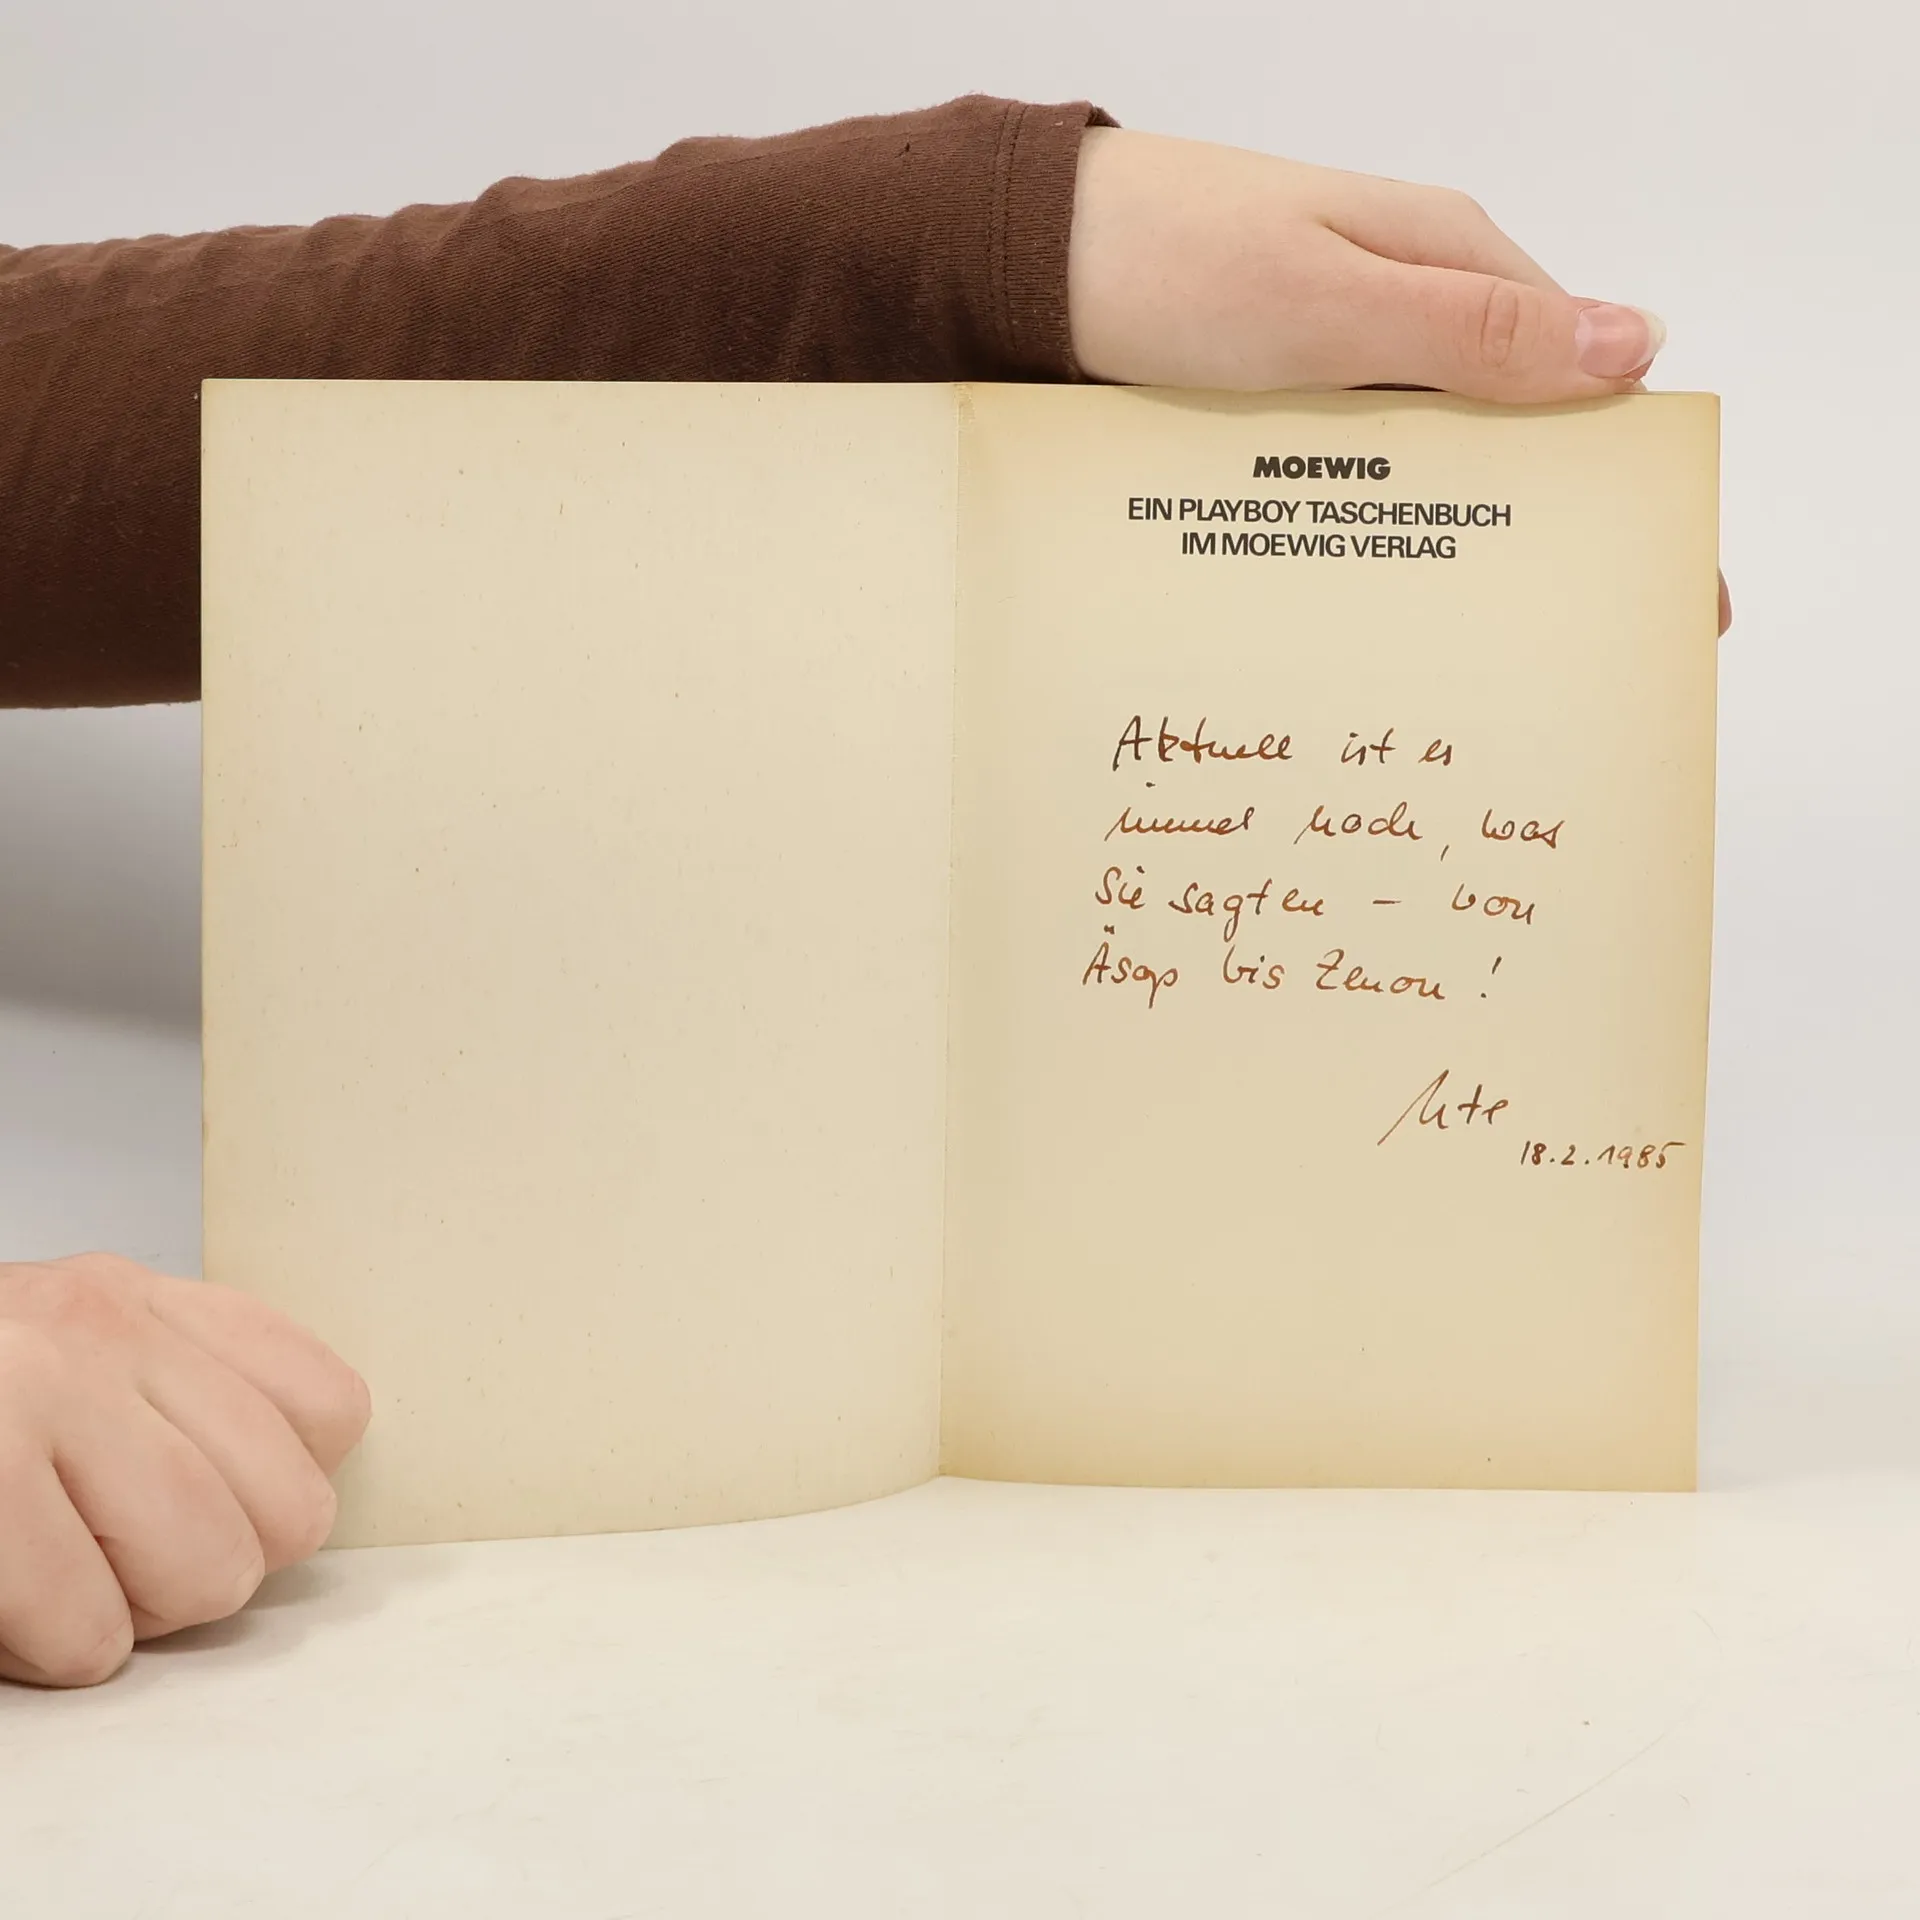 MOEWIG
EIN PLAYBOY TASCHENBUCH
IM MOEWIG VERLAG
Aktuell ist es
immer noch, was
Sie sagten – von
Äsop bis Zenon!
Ute
18.2.1985